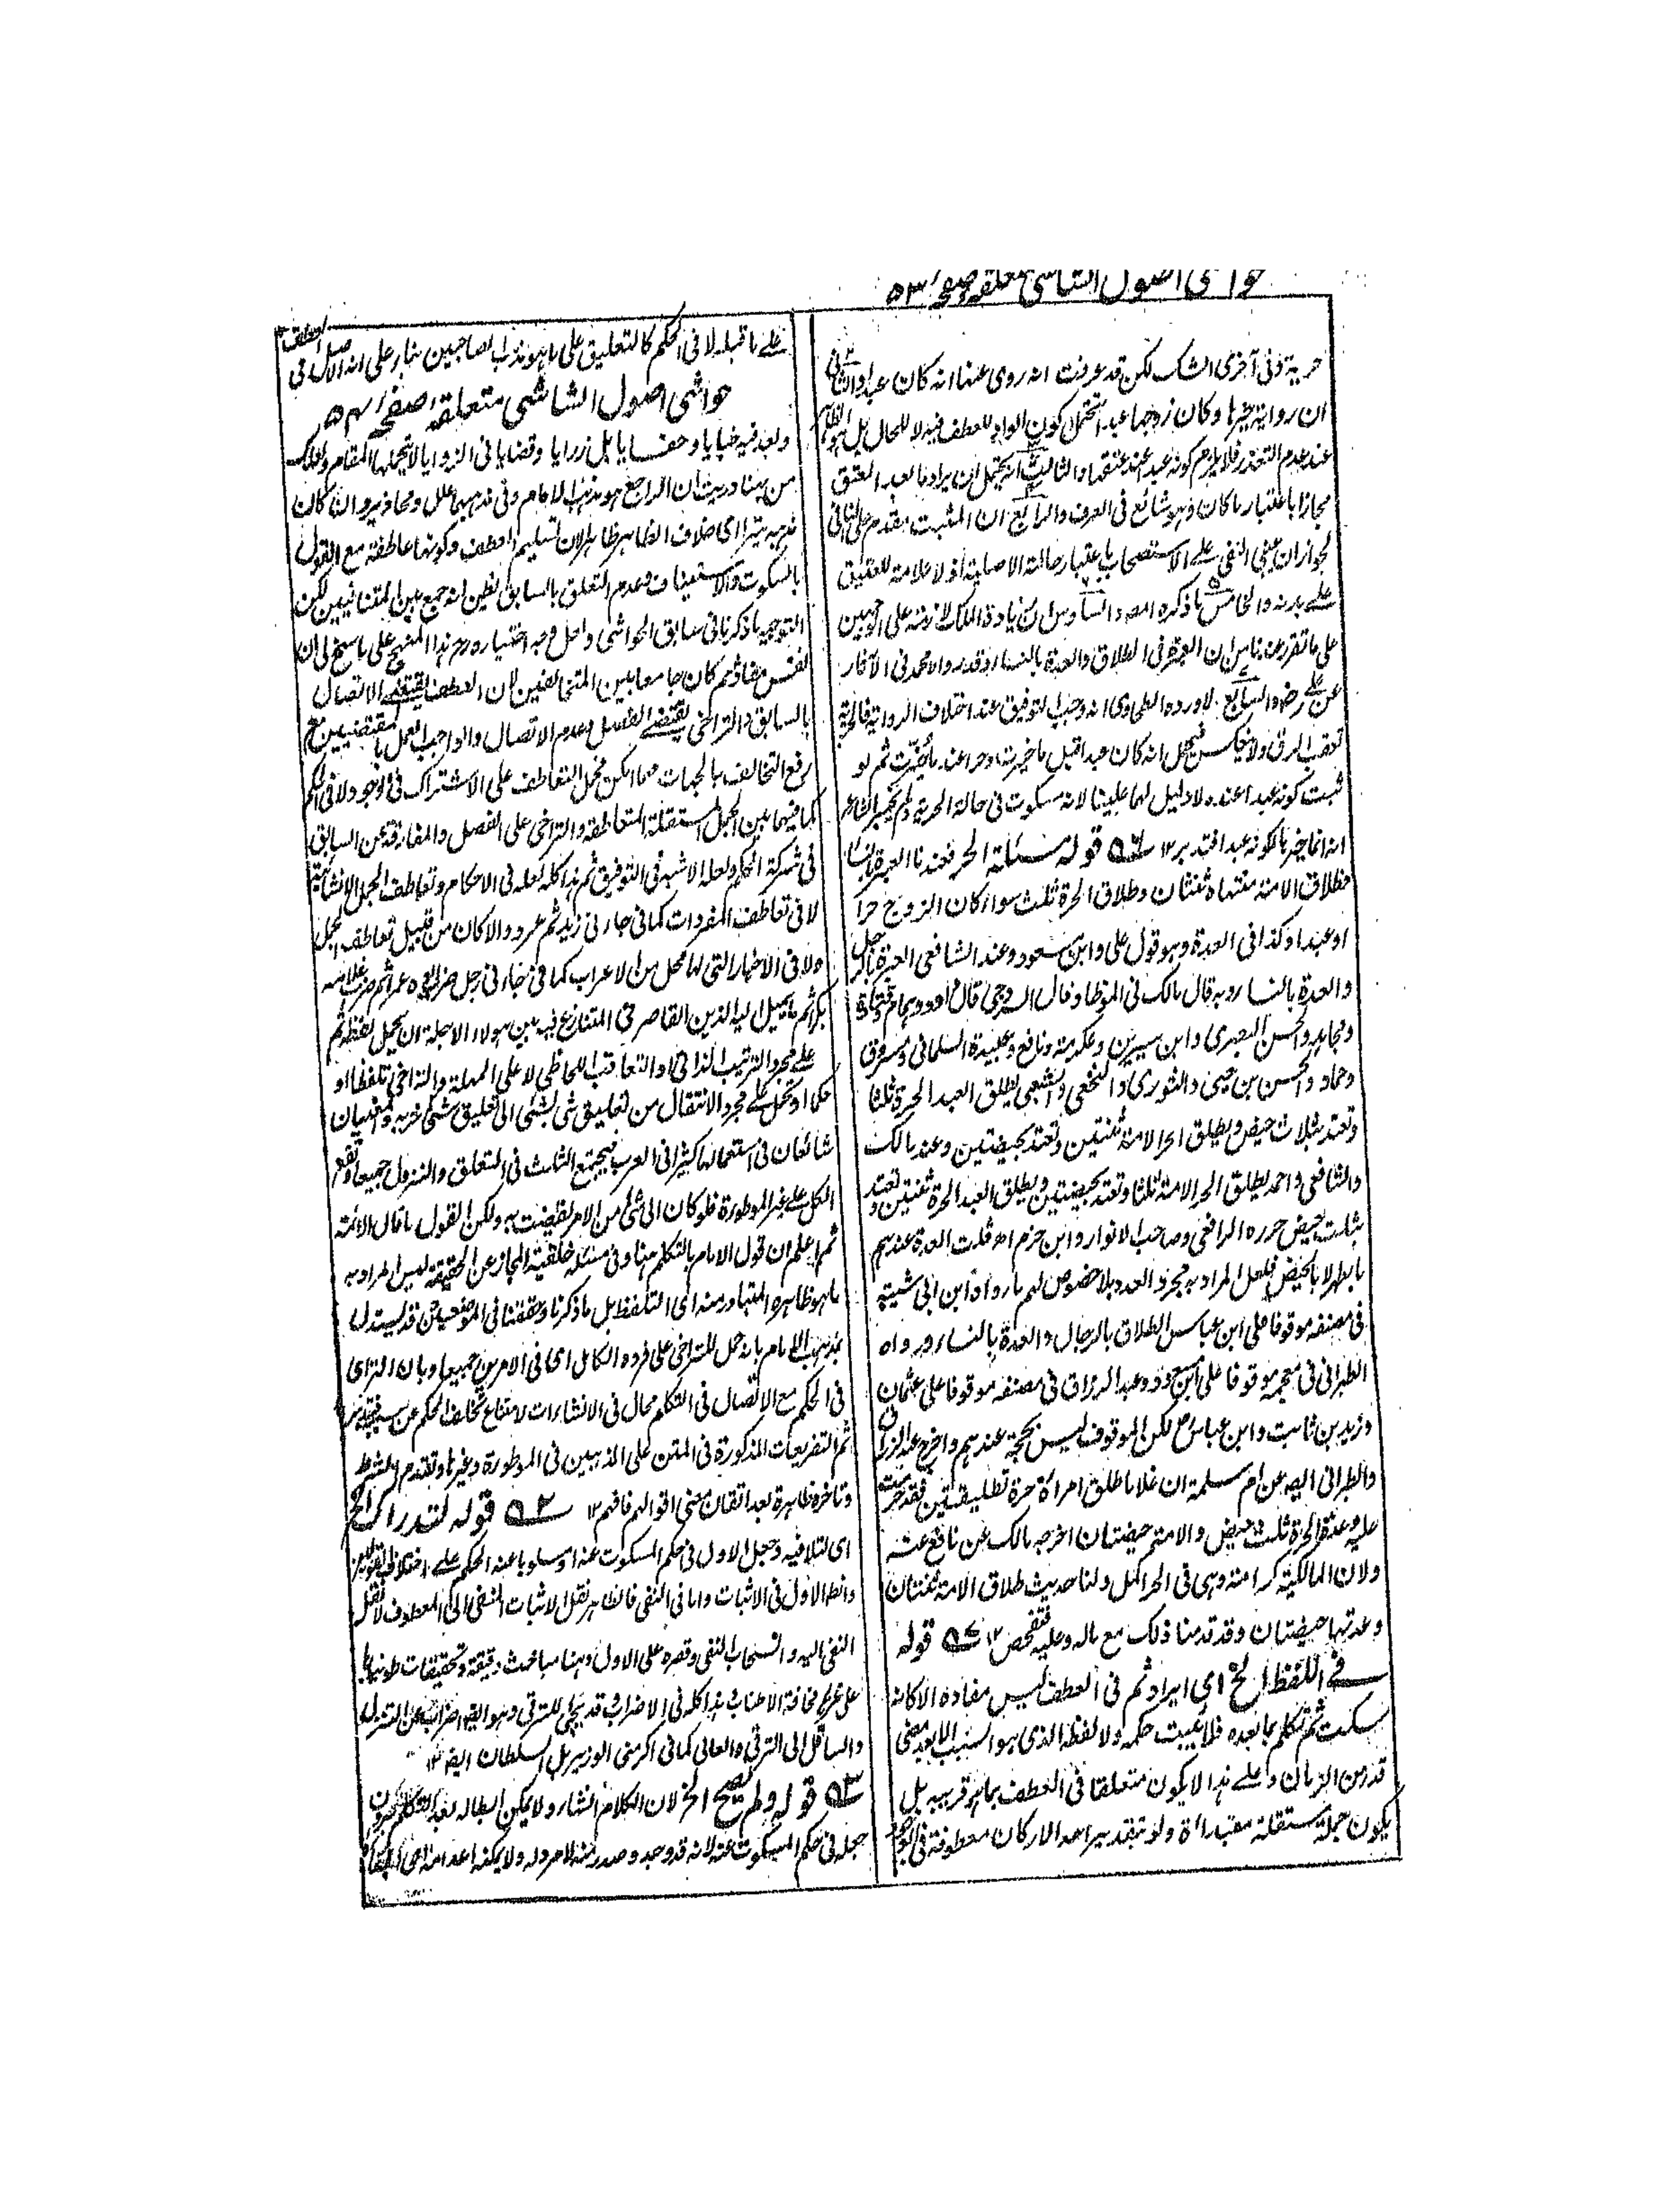 حواشی اصول الشاشی متعلقہ صفحہ ۵۳
حرية وفى آخرى الشك لكن قد عرفت انه روى عنها انه كان عبدا والثانى
ان رواية خيرها وكان زوجها عبدا تحتمل كون الواو للعطف فيه لا للحال بل هو الظاهر
عند عدم التعذر فلا يلزم كونه عبدا عند عتقها والثالث انه يحتمل ان يراد ما بعد العتق
مجازا باعتبار ما كان وهو شائع فى العرف والرابع ان المثبت مقدم على النافى
لجواز ان يبنى النفى على الاستصحاب باعتبار حالته الاصلية اذ لا علامة للعتيق
على بدنه والخامس ما ذكره المص والسادس ان زيادة الملك لازمة على الوجهين
على ما تقرر عندنا من ان العبرة فى الطلاق والعدة بالنساء وقد رواه محمد فى الآثار
عن على رض والسابع لما ورده الطحاوى انه وجب التوفيق عند اختلاف الرواية فالحرية
تعقب الرق ولا ينعكس فيحمل انه كان عبدا قبل ما خيرت وحرا عند ما خيرت ثم لو
ثبت كونه عبدا عنده لا دليل لها علينا لانه مسكوت فى حالة الحرية ولم يخبر الشارع
انه انما خيرها لكونه عبدا فتدبر ١٢ قوله مسئلة الحر فعندنا العبرة بالنساء
فطلاق الامة منتهاه ثنتان وطلاق الحرة ثلث سواء كان الزوج حرا
او عبدا وكذا فى العدة وهو قول على وابن مسعود وعند الشافعى العبرة بالرجل
والعدة بالنساء وبه قال مالك فى المؤطا وقال السروجى قال احمد وهمام وقتادة
ومجاهد والحسن البصرى وابن سيرين وعكرمة ونافع وعبيدة السلمانى ومسروق
وحماد والحسن بن حيى والثورى والنخعى والشعبى يطلق العبد الحرة ثلثا
وتعتد بثلاث حيض ويطلق الحر الامة ثنتين وتعتد بحيضتين وعند مالك
والشافعى واحمد يطلق الحر الامة ثلثا وتعتد بحيضتين ويطلق العبد الحرة ثنتين وتعتد
بثلث حيض حرره الرافعى وصاحب الانوار وابن حزم اه قلت العدة عندهم
بالطهر لا بالحيض فلعل المراد به مجرد العدد بلا خصوص لهم ما رواه ابن ابى شيبة
فى مصنفه موقوفا على ابن عباس الطلاق بالرجال والعدة بالنساء ورواه
الطبرانى فى معجمه موقوفا على ابن مسعود وعبد الرزاق فى مصنفه موقوفا على عثمان
وزيد بن ثابت وابن عباس لكن الموقوف ليس بحجة عندهم واخرج عبد الرزاق
والطبرانى اليه عن ام سلمة ان غلاما طلق امرأة حرة تطليقتين فقد حرمت
عليه وعدة الحرة ثلث حيض والامة حيضتان اخرجه مالك عن نافع عنه
ولان المالكية كرامة وهى فى الحر اكمل ولنا حديث طلاق الامة ثنتان
وعدتها حيضتان وقد قدمنا ذلك مع ماله وعليه فتفحص ١٢ قوله
فى اللفظ الخ اى ايراد ثم فى العطف ليس مفاده الا كانه
سكت ثم تكلم بما بعده فلا يثبت حكمه ولا لفظه الذى هو السبب الا بعد مضى
قدر من الزمان وعلى هذا لا يكون متعلقا فى العطف بما هو قريبه بل
يكون جملة مستقلة مبتدأة ولو بتقدير احد الاركان معطوفة فى الوجود
على ما قبله لا فى الحكم كالتعليق على ما هو مذهب الصاحبين بناء على ان الاصل فى العطف ١٢
حواشی اصول الشاشی متعلقہ صفحہ ۵۴
وبعد فيه خبايا وخفايا بل زوايا وقضايا فى الزوايا لا يتحملها المقام ولعلك
من ههنا دريت ان الراجح هو مذهب الامام وفى مذهبهما علل ومحاذير والنا كان
مذهبه يتراأى خلاف الظاهر ظاهرا لان تسليم العطف وكونها عاطفة مع القول
بالسكوت والاستيناف وعدم التعلق بالسابق يظن انه جمع بين المتنافيين لكن
التوجيه ما ذكرنا فى سابق الحواشى ولعل وجه اختياره رح هذا المنهج على ما سنح لى ان
نفس مفاد ثم كان جامعا بين المتخالفين لان العطف يقتضى الاتصال
بالسابق والتراخى يقتضى الفصل وعدم الاتصال والواجب العمل بالمقتضيين مع
رفع التخالف بالجهات مهما امكن فحمل التعاطف على الاشتراك فى الوجود لا فى الحكم
كما فيما بين الجمل المستقلة المتعاطفة والتراخى على الفصل والمفارقة عن السابق
فى شركة الحكم ولعله الاشبه فى التوفيق ثم هذا كله لعله فى الاحكام وتعاطف الجمل الانشائية
لا فى تعاطف المفردات كما فى جاءنى زيد ثم عمرو والا كان من قبيل تعاطف الجمل
ولا فى الاخبار التى لها محل من الاعراب كما فى جاءنى رجل ضرب ابوه عمرا ثم ضرب غلامه
بكرا ثم ما يميل اليه الذهن القاصر فى المتنازع فيه بين هؤلاء الاجلة ان يحمل لفظة ثم
على مجرد الترتيب الذاتى او التعاقب اللحاظى لا على المهلة والتراخى تلفظا او
حكما او تحمل على مجرد الانتقال من تعليق شئ بشئ الى تعليق شئ آخر به وهذان
شائعان فى استعمالها كثيرا فى العرب فيجتمع الثلث فى التعلق والنزول جميعا وتقع
الكل على غير الموطورة فلو كان الى شئ من الامر لقضيت به ولكن القول ما قال الائمة
ثم اعلم ان قول الامام بالتكلم هنا وفى مسئلة خلفية المجاز عن الحقيقة ليس المراد به
ما هو ظاهره المتبادر منه اى التلفظ بل ما ذكرنا وحققنا فى الموضعين ثم قد يستدل
لمذهب الامام بانه حمل للتراخى على فرده الكامل اى فى الامرين جميعا وبان التراخى
فى الحكم مع الاتصال فى التكلم محال فى الانشاءات لامتناع تخلف الحكم عن سببه فتدبر
ثم التفريعات المذكورة فى المتن على المذهبين فى الموطورة وغيرها وتقدم الشرط
وتاخره ظاهرة بعد اتقان مبنى اقوالهم فافهم ١٢ قوله لتدارك الخ
اى لتلافيه وجعل الاول فى حكم المسكوت عنه او مسلوبا عنه الحكم على اختلاف القولين
وانظر الاول فى الاثبات واما فى النفى فالظاهر نقل الاثبات المنفى الى المعطوف لا نقل
النفى اليه وانسحاب النفى وقصره على الاول وهنا مباحث دقيقة وتحقيقات طويناها
على غرها مخافة الاطناب هذا كله فى الاضراب وقد يجئ للترقى وهو ايضا اضراب عن التنزل
والسافل الى الترقى والعالى كما فى اكرمنى الوزير بل السلطان ايضا ١٢
قوله ولم يصح الخ لان الكلام انشاء ولا يمكن ابطاله بعد التكلم
جعله فى حكم المسكوت عنه لانه قد وجد وصدر منه لا مرد له ولا يمكنه اعدامه